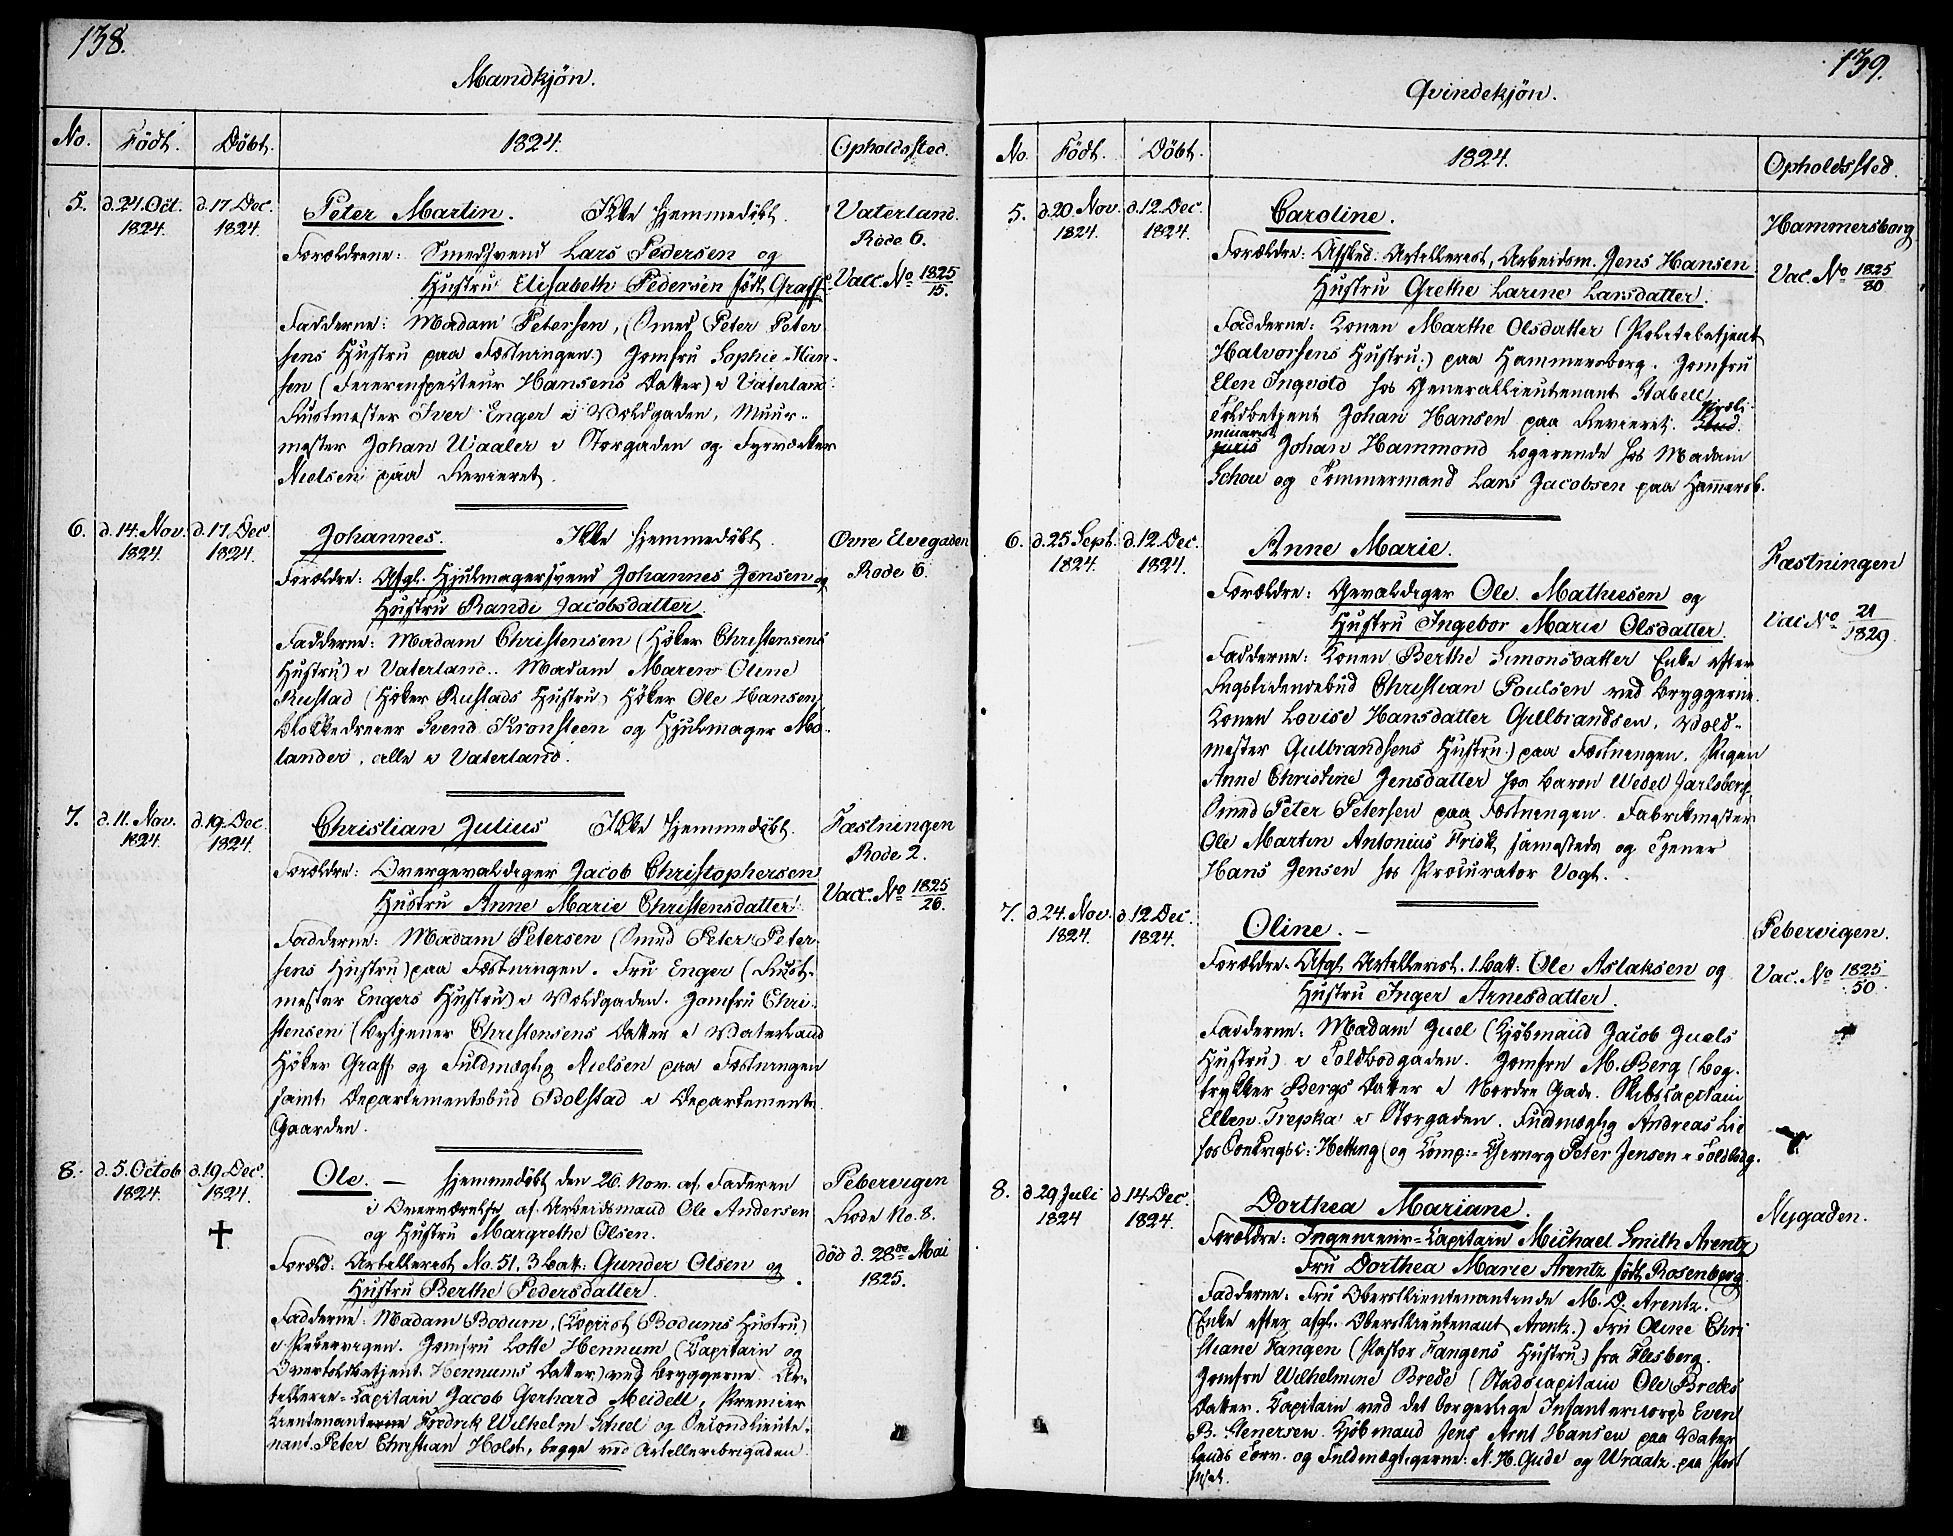 138.
Mandkjøn.
No. Født. Døbt. 1824. Opholdssted.
5. d. 24. Oct. 1824. d. 17. Dec. 1824.
Peter Martin. Ikke hjemmedøbt.
Forældrene: Smedsvend Lars Pedersen og
Hustru Elisabeth Pedersen født Graff.
Fadderne: Madam Petersen, (Smed Peter Peter
sens Hustru paa Fæstningen.) Jomfru Sophie Han-
sen (Feierinspecteur Hansens Datter) i Vaterland
Rustmester Iver Enger i Voldgaden, Muur-
mester Johan Waaler i Storgaden og Fyrværker
Nielsen paa Revieret.
Vaterland.
Rode 6.
Vacc. No 1825/15.
6. d. 14. Nov. 1824. d. 17. Dec. 1824.
Johannes. Ikke hjemmedøbt.
Forældre: Afgl. Hjulmagersvend Johannes Jensen og
Hustru Randi Jacobsdatter.
Fadderne: Madam Christensen (Høker Christensens
Hustru) i Vaterland. Madam Maren Oline
Rustad (Høker Rustads Hustru) Høker Ole Hansen,
Blokkedreier Svend Kronsteen og Hjulmager Mo-
lander, alle i Vaterland.
Øvre Elvegaden
Rode 6.
7. d. 11. Nov. 1824. d. 19. Dec. 1824.
Christian Julius Ikke hjemmedøbt.
Forældre: Overgevaldiger Jacob Christophersen
Hustru Anne Marie Christensdatter.
Fadderne: Madam Petersen (Smed Peter Peter
sens Hustru) paa Fæstningen. Fru Enger (Rust-
mester Engers Hustru) i Voldgaden. Jomfru Chri-
stensen (Bytjener Christensens Datter i Vaterland
Høker Graff og Fuldmægtig Nielsen paa Fæstningen
samt Departementsbud Bolstad i Departements
Gaarden.
Fæstningen
Rode 2.
Vacc. No 1825/26.
8. d. 5. Octob 1824. d. 19. Dec. 1824.
Ole. — hjemmedøbt den 26. Nov. af Faderen
i Overværelse af Arbeidsmand Ole Andersen
og Hustru Margrethe Olsen.
Foræld: Artillerist No. 51, 3 Batt: Gunder Olsen og
Hustru Berthe Pedersdatter.
Fadderne: Madam Bodum, (Copiist Bodums Hustru)
i Pebervigen. Jomfru Lotte Hennum (Capitain og
Overtoldbetjent Hennums Datter) ved Bryggerne. Ar-
tillerie-Capitain Jacob Gerhard Meidell, Premier
Lieutenanterne Fredrik Wilhelm Scheel og Secondlieute-
nant Peter Christian Holst, begge ved Artilleribrigaden.
Pebervigen
Rode No. 8.
død d. 28de Mai
1825.
139.
Qvindekjøn.
No. Født. Døbt. 1824. Opholdssted.
5. d. 20 Nov. 1824. d. 12. Dec. 1824.
Caroline.
Forældre: Afsked. Artillerist, Arbeidsm. Jens Hansen
Hustru Grethe Larine Larsdatter.
Fadderne: Konen Marthe Olsdatter (Politebetjent
Halvorsens Hustru;) paa Hammersborg. Jomfru
Elen Ingvold hos GeneralLieutenant Stabell
Toldbetjent Johan Hansen paa Revieret. Stud. Præli-
minarist juris Johan Hammond Logerende hos Madam
Schou og Tømmermand Lars Jacobsen paa Hammersb.
Hammersborg
Vac. No 1825/80
6. d. 25 Sept. 1824. d. 12. Dec. 1824.
Anne Marie.
Forældre: Gevaldiger Ole Mathiesen og
Hustru Ingebor Marie Olsdatter.
Fadderne: Konen Berthe Simonsdatter Enke efter
Christian Poulsen ved Bryggerne.
Konen Lovise Hansdatter Gulbrandsen, Vold-
mester Gulbrandsens Hustru) paa Fæstningen. Pigen
Anne Christine Jensdatter hos Baron Wedel Jarlsberg
Smed Peter Petersen paa Fæstningen. Fabrikmester
Ole Martin Antonius Frisk sammesteds og Tjener
Hans Jensen hos Procurator Vogt.
Fæstningen
Vac No 21/1829.
7. d. 24. Nov. 1824. d. 12 Dec. 1824.
Oline. —
Forældre. Afgl. Artillerist. 1. Batt: Ole Aslaksen og
Hustru Inger Arnesdatter.
Fadderne: Madam Juel (Kjøbmand Jacob Juels
Hustru) i Toldbodgaden. Jomfru M. Berg (Bog-
trykker Bergs Datter i Nordre Gade. Skibscapitain
Ellen Trepka i Storgaden. Fuldmægtig Andreas Lie
hos Hetting (og Comp: Peter Jensen i Toldbodg.
Pebervigen.
Vac. No 1825/50
8. d 29 Juli 1824 d. 14. Dec. 1824.
Dorthea Mariane.
Forældre: Ingenieur-Capitain Michael Smith Arentz
Fru Dorthea Marie Arentz født Rosenberg.
Fadderne: Fru Oberstlieutenantinde M. D. Arentz.
(Enke efter afgl. Oberstlieutenant Arentz.) Fru Oline Chri
stiane Fangen (Pastor Fangens Hustru) fra Flesberg.
Jomfru Wilhelmine Brede (Stadscapitain Ole Bredes
Datter. Capitain ved det borgerlige Infantericorps Even
B. Stenersen. Kjøbmand Jens Arnt Hansen paa Vater
lands Torv. og Fuldmægtigerne: N. H. Gude og Wraatz. paa
Nygaden.